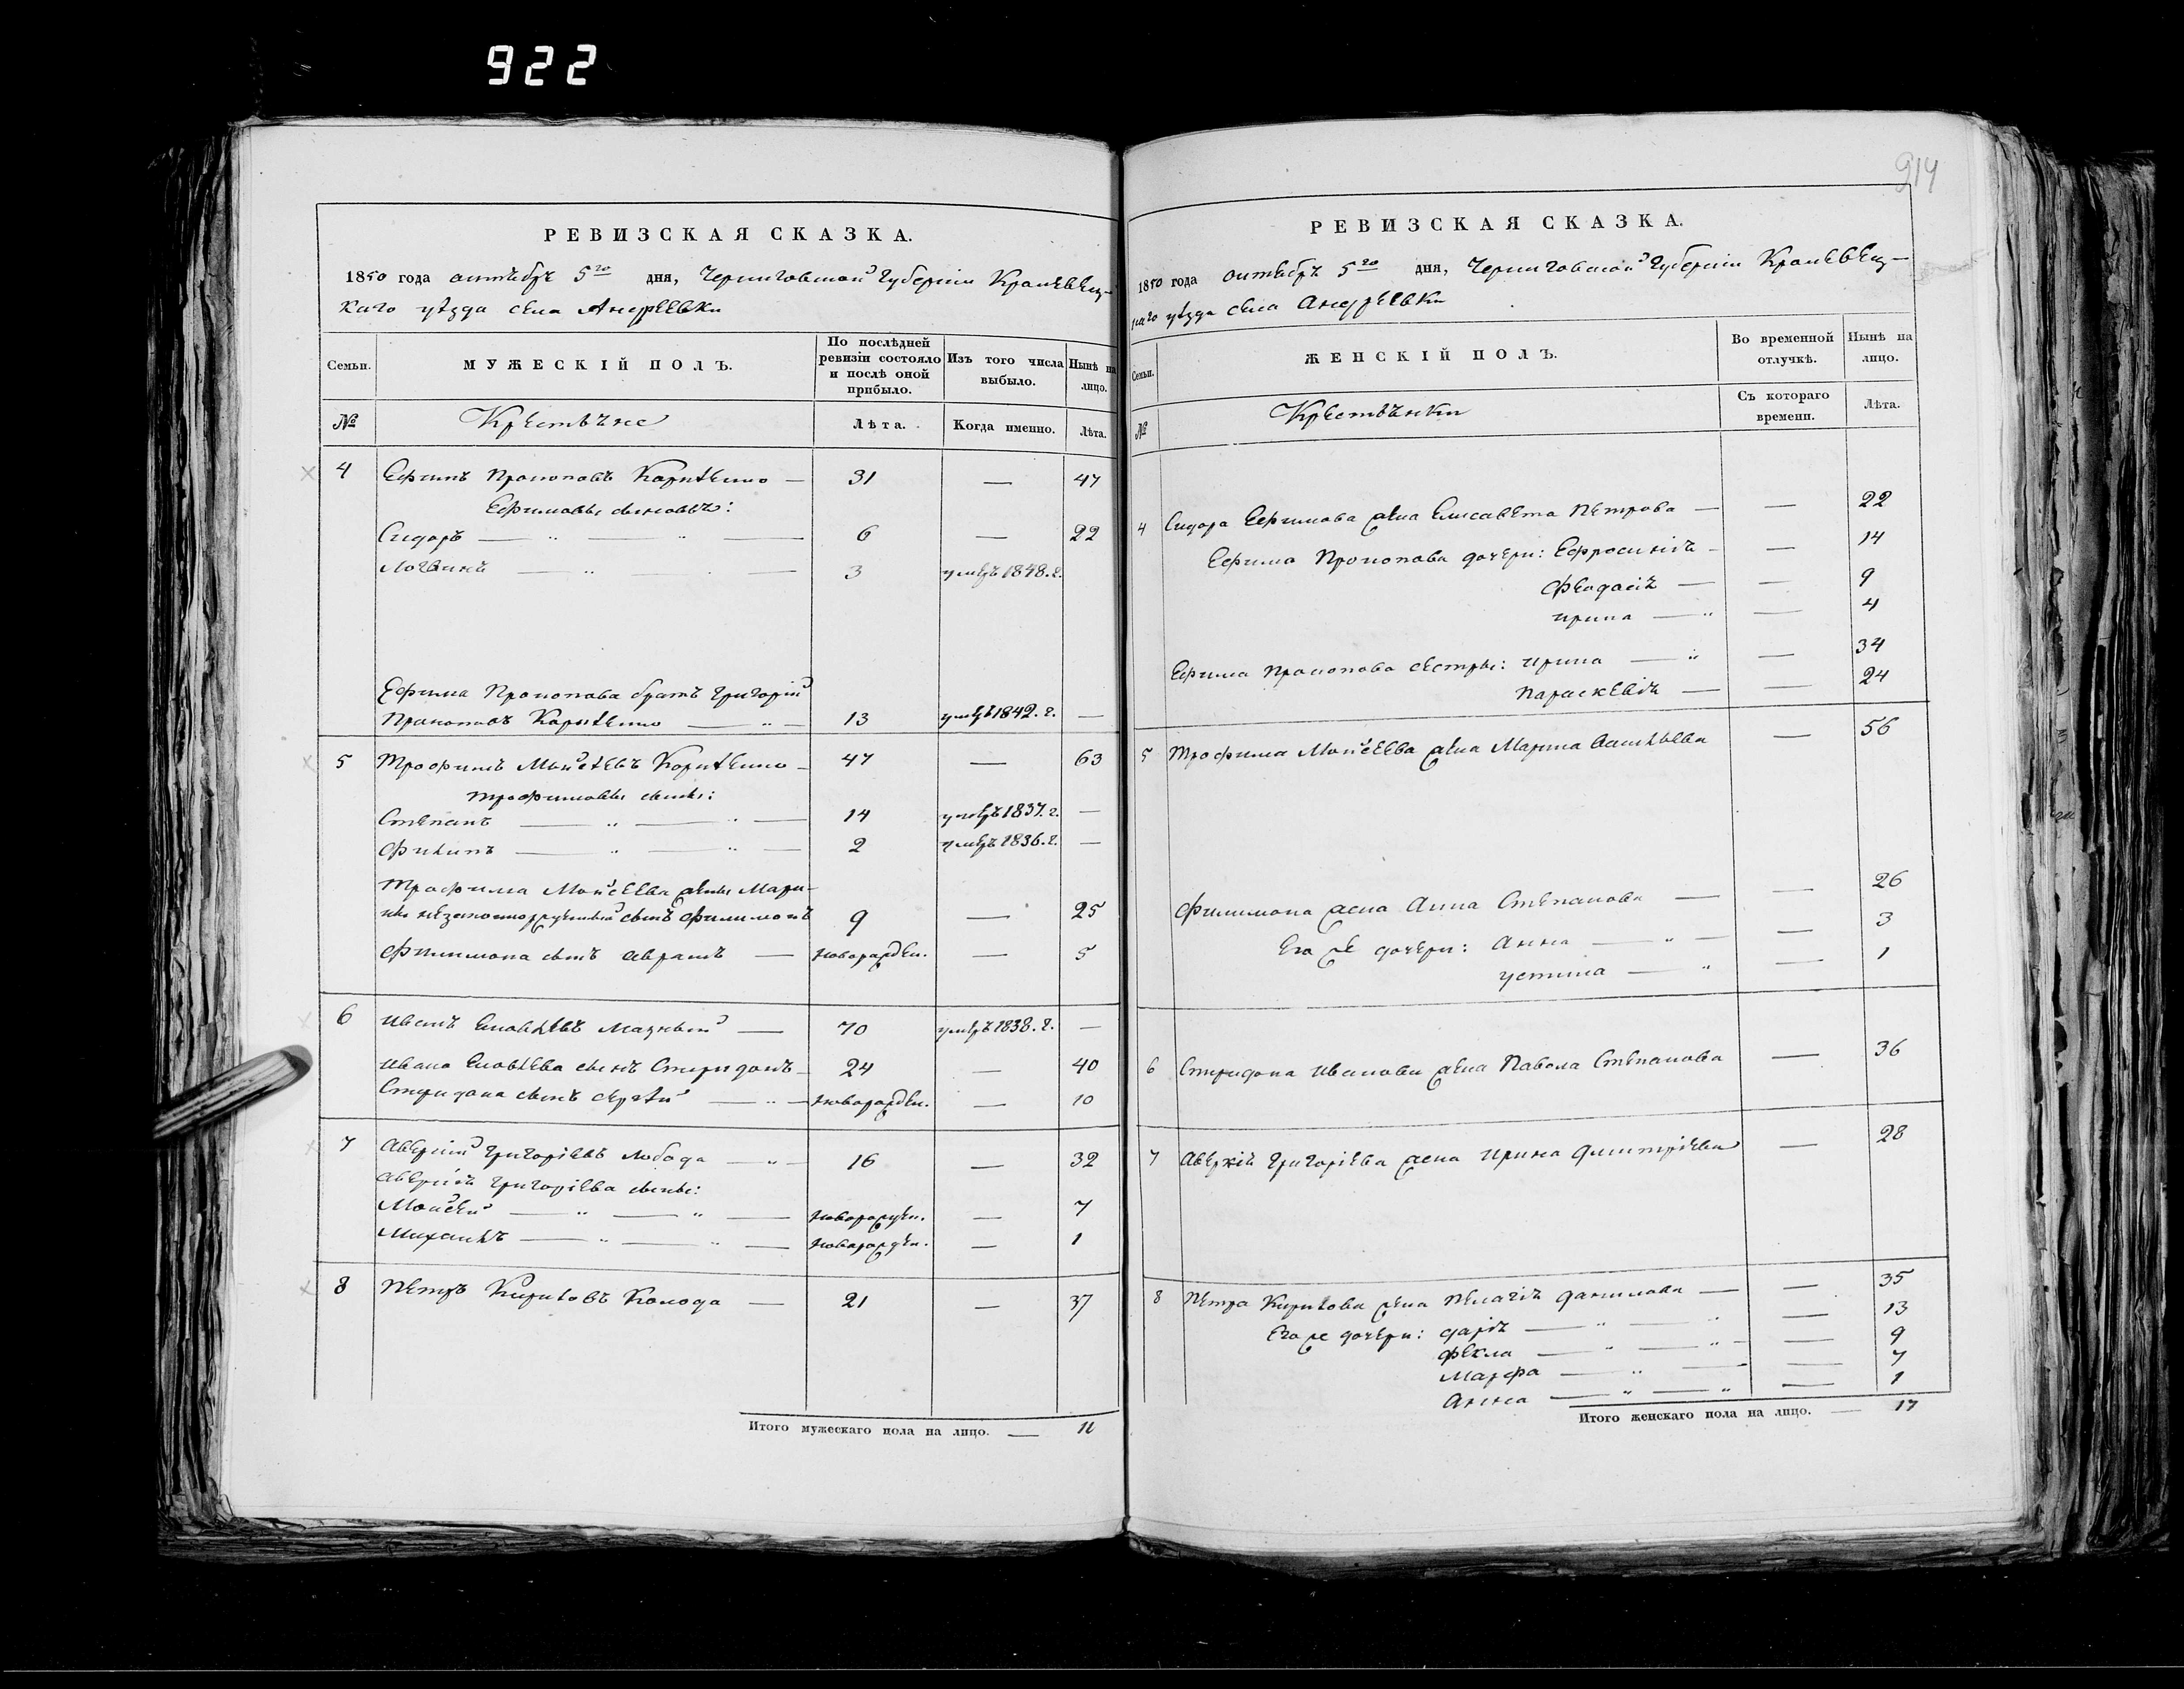 922
914
РЕВИЗСКАЯ СКАЗКА.
1850 года октября 5го дня, Черниговской Губерніи Кролевец-
каго уѣзда села Андреевки
Семьи.
МУЖЕСКІЙ ПОЛЪ.
По послѣдней ревизіи состояло и послѣ оной прибыло.
Изъ того числа выбыло.
Нынѣ на лицо.
№
Крестьяне
Лѣта.
Когда именно.
Лѣта.
4 Ефимъ Прокоповъ — 31 — 47
Ефимовы сыновья:
Сидоръ — " — " — 6 — 22
Логвинъ — " — 3 умеръ 1848. г.
Ефима Прокопова братъ Григорій
Прокоповъ — " — 13 умеръ 1842. г. —
5 Трофимъ Мойсѣевъ — 47 — 63
Трофимовы сыны:
Степанъ — " — " — 14 умеръ 1837. г. —
Филипъ — " — " — 2 умеръ 1836. г. —
Трофима Мойсеева жены Мари-
ны незаконнорожденный сынъ Филимонъ 9 — 25
Филимона сынъ Абрамъ — новорожден. — 5
6 Иванъ — 70 умеръ 1838. г. —
Ивана сынъ Спиридонъ — 24 — 40
Спиридона сынъ Сергѣй — " — новорожден. — 10
7 Аверкій Григоріевъ Лобода — " — 16 — 32
Аверкія Григоріева сыны:
Мойсей — " — " — новорожден. — 7
Михаилъ — " — " — новорожден. — 1
8 Петръ Кириловъ Колода — 21 — 37
Итого мужескаго пола на лицо. — 11
РЕВИЗСКАЯ СКАЗКА.
1850 года октября 5го дня, Черниговской Губерніи Кролевец-
каго уѣзда села Андреевки
Семьи.
ЖЕНСКІЙ ПОЛЪ.
Во временной отлучкѣ.
Нынѣ на лицо.
№
Крестьянки
Съ котораго времени.
Лѣта.
4 Сидора Ефимова жена Елисавета Петрова — — 22
Ефима Прокопова дочери: Ефросинія — — 14
Феодосія — — 9
Ирина — " — 4
Ефима Прокопова сестры: Ирина — " — 34
Параскевія — — 24
5 Трофима Мойсеева жена Марина Васильева — 56
Филимона жена Анна Степанова — — 26
Его же дочери: Анна — " — — 3
Устина — " — 1
6 Спиридона Иванова жена Павола Степанова — 36
7 Аверкія Григоріева жена Ирина Дмитріева — 28
8 Петра Кирилова жена Пелагія Данилова — — 35
Его же дочери: Дарія — " — " — 13
Фекла — " — " — 9
Марфа — " — — 7
Анна — " — " — 1
Итого женскаго пола на лицо. — 17